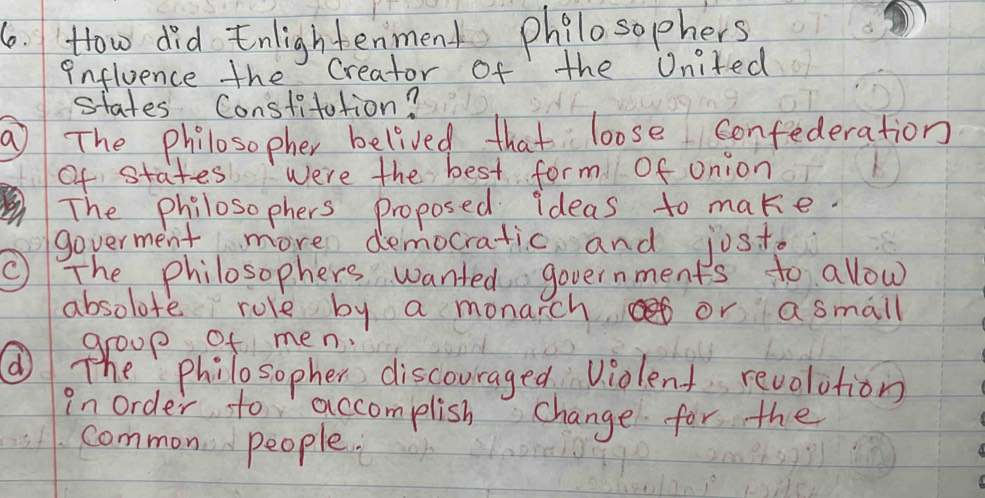 6. How did Enlightenment philosophers
influence the Creator of the United
States Constitution?
a) The philosopher belived that loose confederation
of states were the best form of union
The philosophers proposed ideas to make.
goverment more democratic and just.
c) The philosophers wanted governments to allow
absolute rule by a monarch or a small
group of men.
d) The philosopher discouraged violent revolution
in order to accomplish change for the
common people.